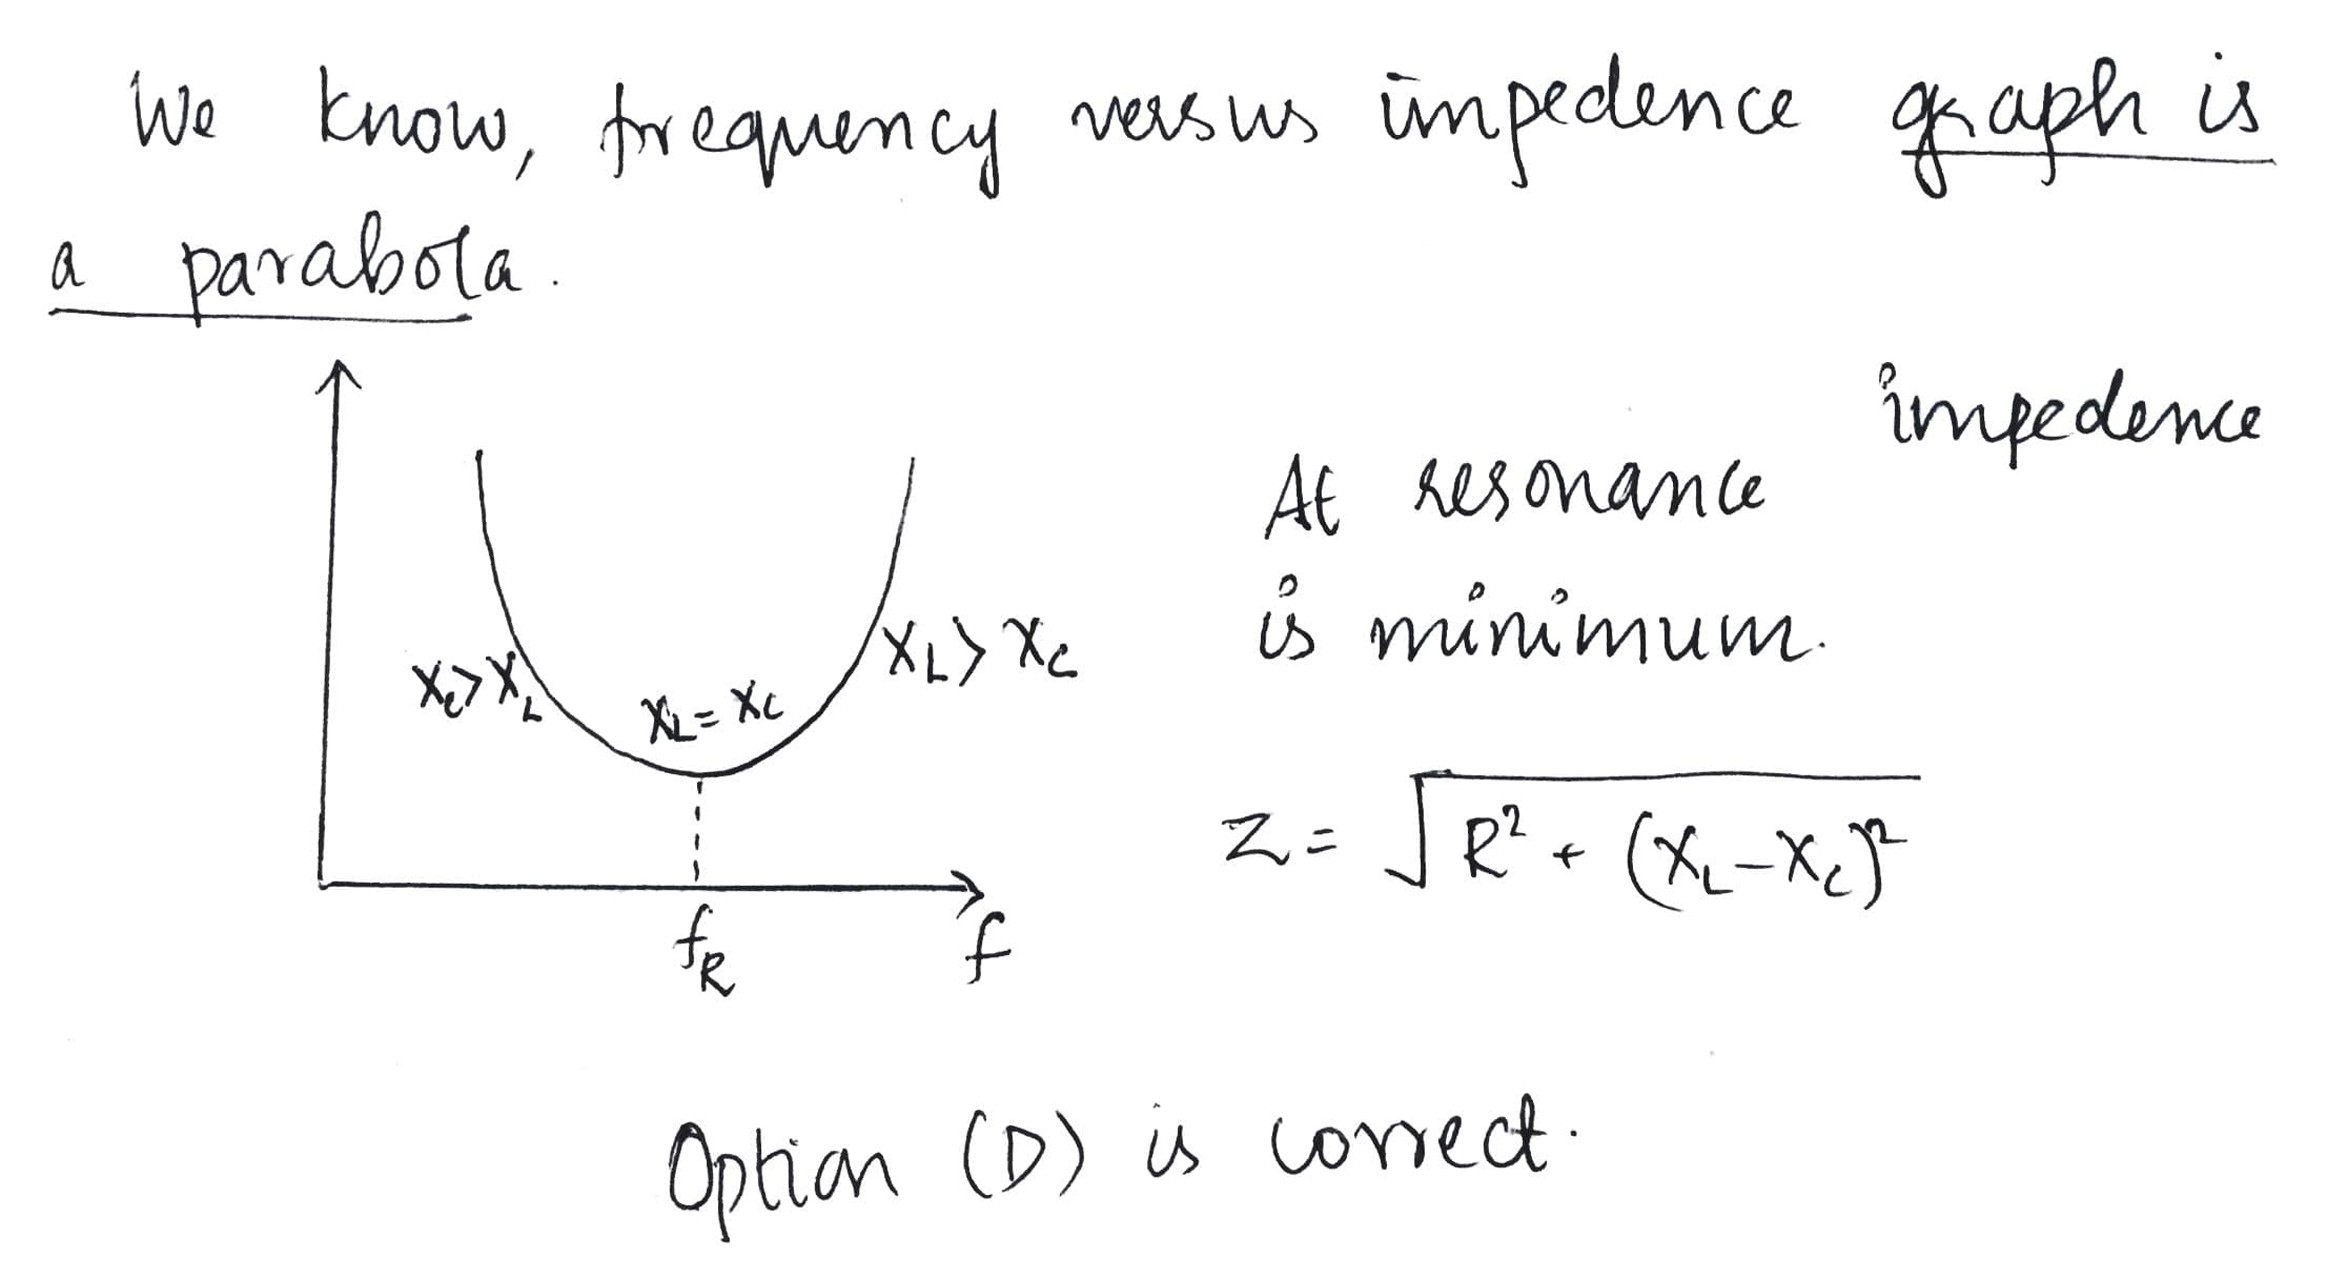 We know, frequency versus impedence graph is
a parabola.
impedence
At resonance
is minimum.
X_C > X_L
X_L = X_C
X_L > X_C
Z = √(R² + (X_L - X_C)²)
f_R
f
Option (D) is correct.